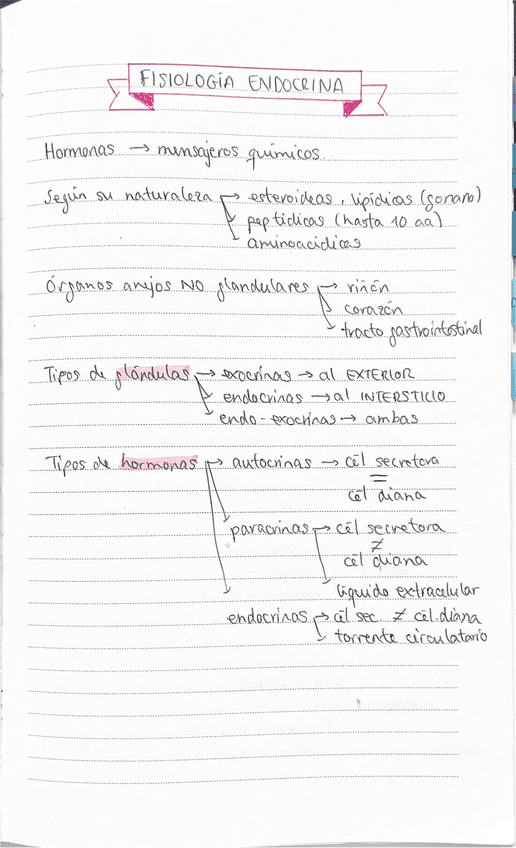 FISIOLOGÍA ENDOCRINA
Hormonas → mensajeros químicos
Según su naturaleza → esteroideas, lipídicas (gonano)
→ peptídicas (hasta 10 aa)
→ aminoacídicas
Órganos anejos NO glandulares → riñón
→ corazón
→ tracto gastrointestinal
Tipos de glándulas → exocrinas → al EXTERIOR
→ endocrinas → al INTERSTICIO
→ endo-exocrinas → ambas
Tipos de hormonas → autocrinas → cél secretora
=
cél diana
→ paracrinas → cél secretora
≠
cél diana
→ líquido extracelular
→ endocrinas → cél sec. ≠ cél.diana
→ torrente circulatorio